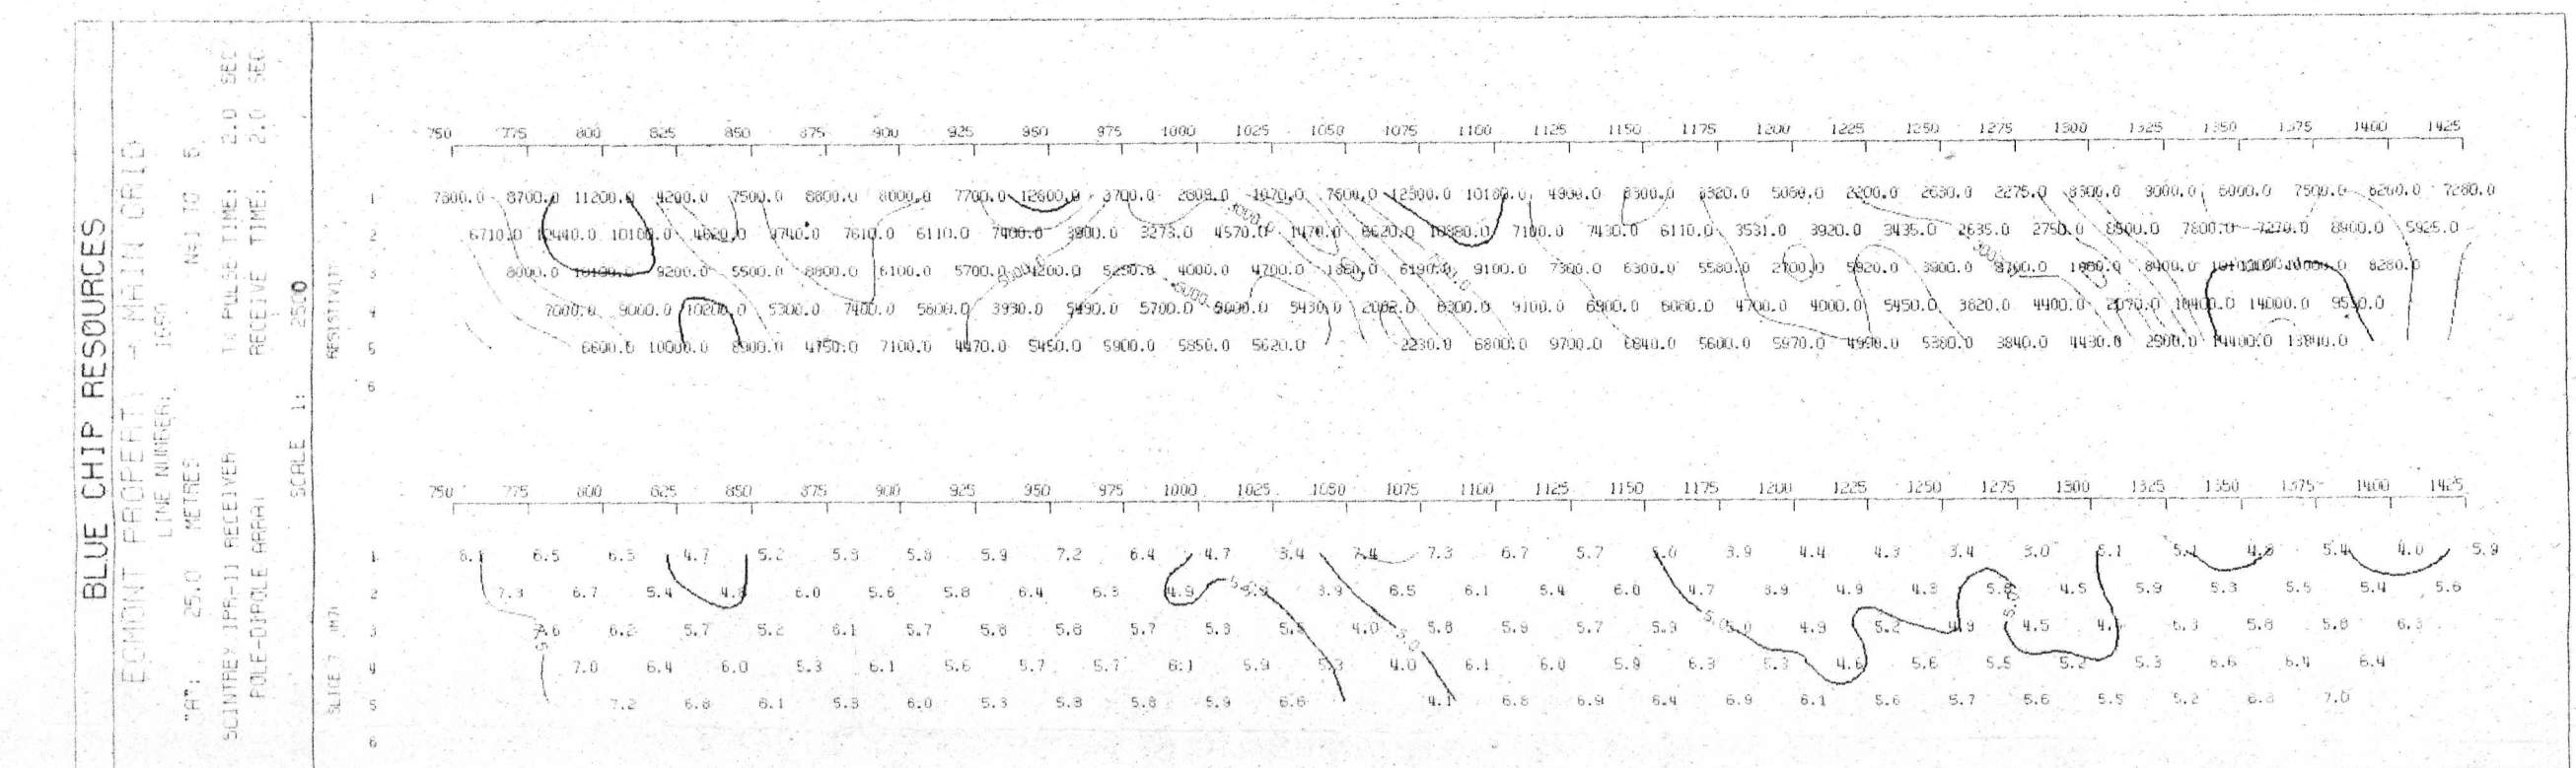 BLUE CHIP RESOURCES
EGMONT PROPERTY - MAIN GRID
LINE NUMBER:
"A": 25.0 METRES N=1 TO 6
SCINTREX IPR-11 RECEIVER TX PULSE TIME: 2.0 SEC
POLE-DIPOLE ARRAY RECEIVE TIME: 2.0 SEC
SCALE 1: 2500
RESISTIVITY
750 775 800 825 850 875 900 925 950 975 1000 1025 1050 1075 1100 1125 1150 1175 1200 1225 1250 1275 1300 1325 1350 1375 1400 1425
1 8700.0 11200.0 4200.0 7500.0 8800.0 8000.0 7700.0 12600.0 3700.0 1070.0 7600.0 12500.0 4900.0 2200.0 2630.0 2275.0 8300.0 9000.0 7500.0 6200.0 7280.0
2 6710.0 10100.0 7610.0 6110.0 7400.0 3900.0 3275.0 4570.0 1470.0 6620.0 7100.0 7430.0 6110.0 3531.0 3920.0 3435.0 2635.0 2750.0 8500.0 7800.0 7270.0 8900.0 5925.0
3 8000.0 9200.0 5500.0 8800.0 6100.0 5700.0 4200.0 4000.0 4700.0 9100.0 7300.0 6300.0 5580.0 5920.0 3900.0 8400.0 8280.0
4 7000.0 9000.0 10200.0 5300.0 7400.0 5600.0 3930.0 5490.0 5700.0 5430.0 8300.0 9100.0 6900.0 6080.0 4700.0 4000.0 5450.0 3820.0 4400.0 2070.0 14000.0
5 6600.0 10000.0 8900.0 4750.0 7100.0 4470.0 5450.0 5900.0 5850.0 5620.0 2230.0 6800.0 9700.0 6840.0 5600.0 5970.0 4990.0 5380.0 3840.0 4430.0 2500.0 14400.0 13840.0
6
750 775 800 825 850 875 900 925 950 975 1000 1025 1050 1075 1100 1125 1150 1175 1200 1225 1250 1275 1300 1325 1350 1375 1400 1425
SLICE 7 (M7)
1 6.5 6.3 4.7 5.2 5.3 5.8 5.9 7.2 6.4 4.7 3.4 7.4 7.3 6.7 5.7 3.9 4.4 4.3 3.4 3.0 5.1 5.4 4.0 5.9
2 7.3 6.7 5.4 4.8 6.0 5.6 5.8 6.4 6.3 4.9 3.9 6.5 6.1 5.4 6.0 4.7 3.9 4.9 4.3 4.5 5.9 5.3 5.5 5.4 5.6
3 6.2 5.7 5.2 6.1 5.7 5.8 5.8 5.7 5.3 4.0 5.8 5.9 5.7 5.9 4.9 5.2 4.9 4.5 6.3 5.8 5.8 6.3
4 7.0 6.4 6.0 5.3 6.1 5.6 5.7 5.7 6.1 5.9 5.3 4.0 6.1 6.0 5.9 6.3 5.3 4.6 5.6 5.5 5.2 5.3 6.6 6.4 6.4
5 7.2 6.8 6.1 5.3 6.0 5.3 5.8 5.8 5.9 6.6 4.1 6.8 6.9 6.4 6.9 6.1 5.6 5.7 5.6 5.5 5.2 6.8 7.0
6